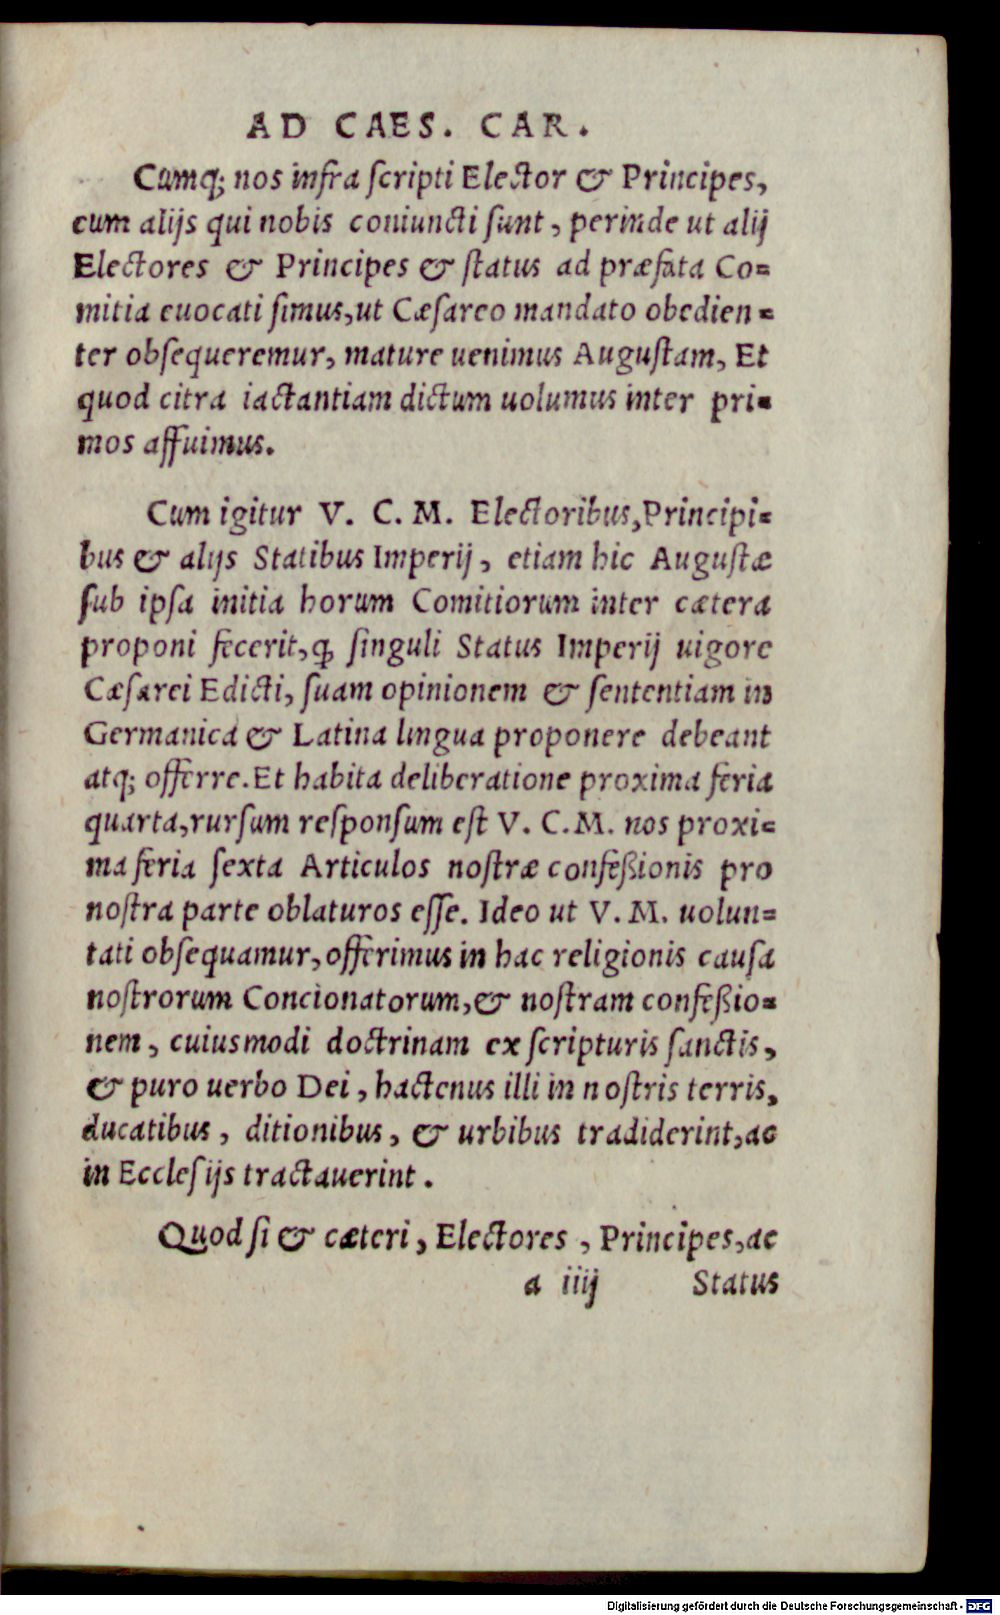 AD CAES. CAR.
Cumq; nos infra ſcripti Elector & Principes,
cum alijs qui nobis coniuncti ſunt, perinde ut alij
Electores & Principes & ſtatus ad præfata Co=
mitia euocati ſimus, ut Cæſareo mandato obedien=
ter obſequeremur, mature uenimus Auguſtam, Et
quod citra iactantiam dictum uolumus inter pri=
mos affuimus.
Cum igitur V. C. M. Electoribus, Principi=
bus & alijs Statibus Imperij, etiam hic Auguſtæ
ſub ipſa initia horum Comitiorum inter cætera
proponi fecerit, ꝙ ſinguli Status Imperij uigore
Cæſarei Edicti, ſuam opinionem & ſententiam in
Germanica & Latina lingua proponere debeant
atq; offerre. Et habita deliberatione proxima feria
quarta, rurſum reſponſum eſt V. C. M. nos proxi=
ma feria ſexta Articulos noſtræ confeßionis pro
noſtra parte oblaturos eſſe. Ideo ut V. M. uolun=
tati obſequamur, offerimus in hac religionis cauſa
noſtrorum Concionatorum, & noſtram confeßio=
nem, cuiusmodi doctrinam ex ſcripturis ſanctis,
& puro uerbo Dei, hactenus illi in noſtris terris,
ducatibus, ditionibus, & urbibus tradiderint, ac
in Eccleſijs tractauerint.
Quod ſi & cæteri, Electores, Principes, ac
a iiij Status
Digitalisierung gefördert durch die Deutsche Forschungsgemeinschaft - DFG